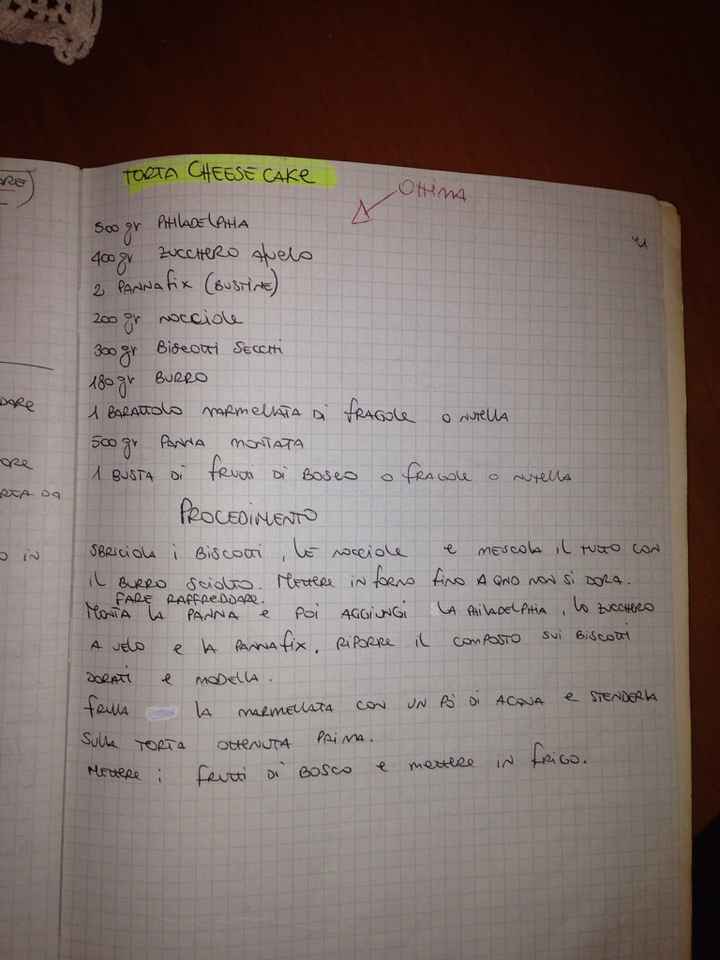 TORTA CHEESE CAKE
OTTIMA
500 gr PHILADELPHIA
400 gr ZUCCHERO A VELO
2 PANNAFIX (BUSTINE)
200 gr NOCCIOLE
300 gr BISCOTTI SECCHI
180 gr BURRO
1 BARATTOLO MARMELLATA DI FRAGOLE O NUTELLA
500 gr PANNA MONTATA
1 BUSTA DI FRUTTI DI BOSCO O FRAGOLE O NUTELLA
PROCEDIMENTO
SBRICIOLA I BISCOTTI, LE NOCCIOLE E MESCOLA IL TUTTO CON
IL BURRO SCIOLTO. METTERE IN FORNO FINO A QNO NON SI DORA.
FARE RAFFREDDARE.
MONTA LA PANNA E POI AGGIUNGI LA PHILADELPHIA, LO ZUCCHERO
A VELO E LA PANNAFIX, RIPORRE IL COMPOSTO SUI BISCOTTI
DORATI E MODELLA.
FRULLA LA MARMELLATA CON UN PÒ DI ACQUA E STENDERLA
SULLA TORTA OTTENUTA PRIMA.
METTERE I FRUTTI DI BOSCO E METTERE IN FRIGO.